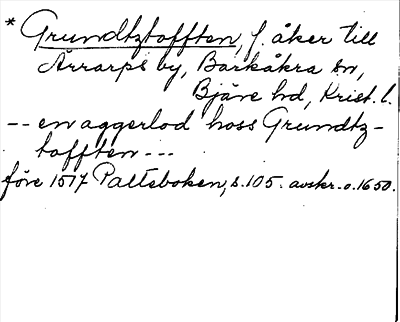 * Grundtztofften, f. åker till
Ärrarps by, Barkåkra sn,
Bjäre hd, Krist. l.
-- en aggerlod hoss Grundtz-
tofften ---
före 1517 Palteboken, s. 105. avskr. o. 1650.